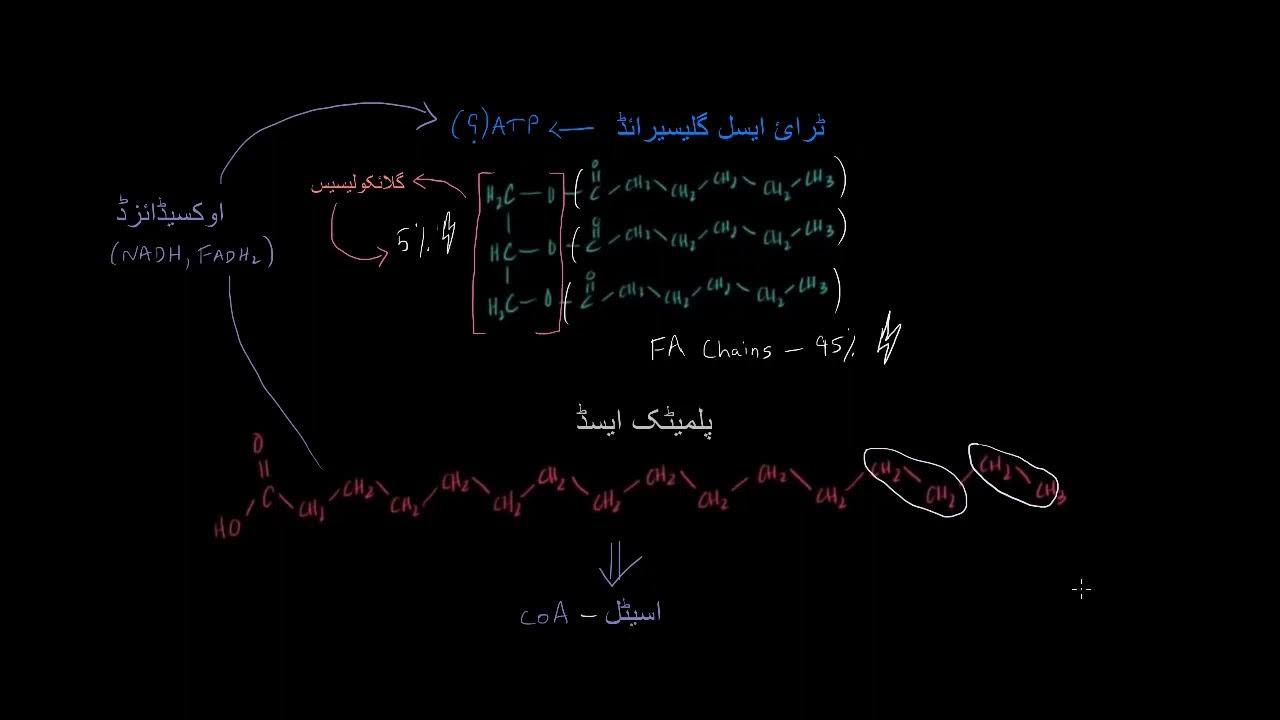 ٹرائ ایسل گلیسیرائڈ → ATP(؟)
گلائکولیسیس
5%
اوکسیڈائزڈ
(NADH, FADH₂)
H₂C — O — C CH₂ CH₂ CH₂ CH₂ CH₃
O
HC — O — C CH₂ CH₂ CH₂ CH₂ CH₃
O
H₂C — O — C CH₂ CH₂ CH₂ CH₂ CH₃
O
FA Chains — 95%
پلمیٹک ایسڈ
O
HO C CH₂ CH₂ CH₂ CH₂ CH₂ CH₂ CH₂ CH₂ CH₂ CH₂ CH₂ CH₂ CH₂ CH₂ CH₃
اسیٹل – CoA